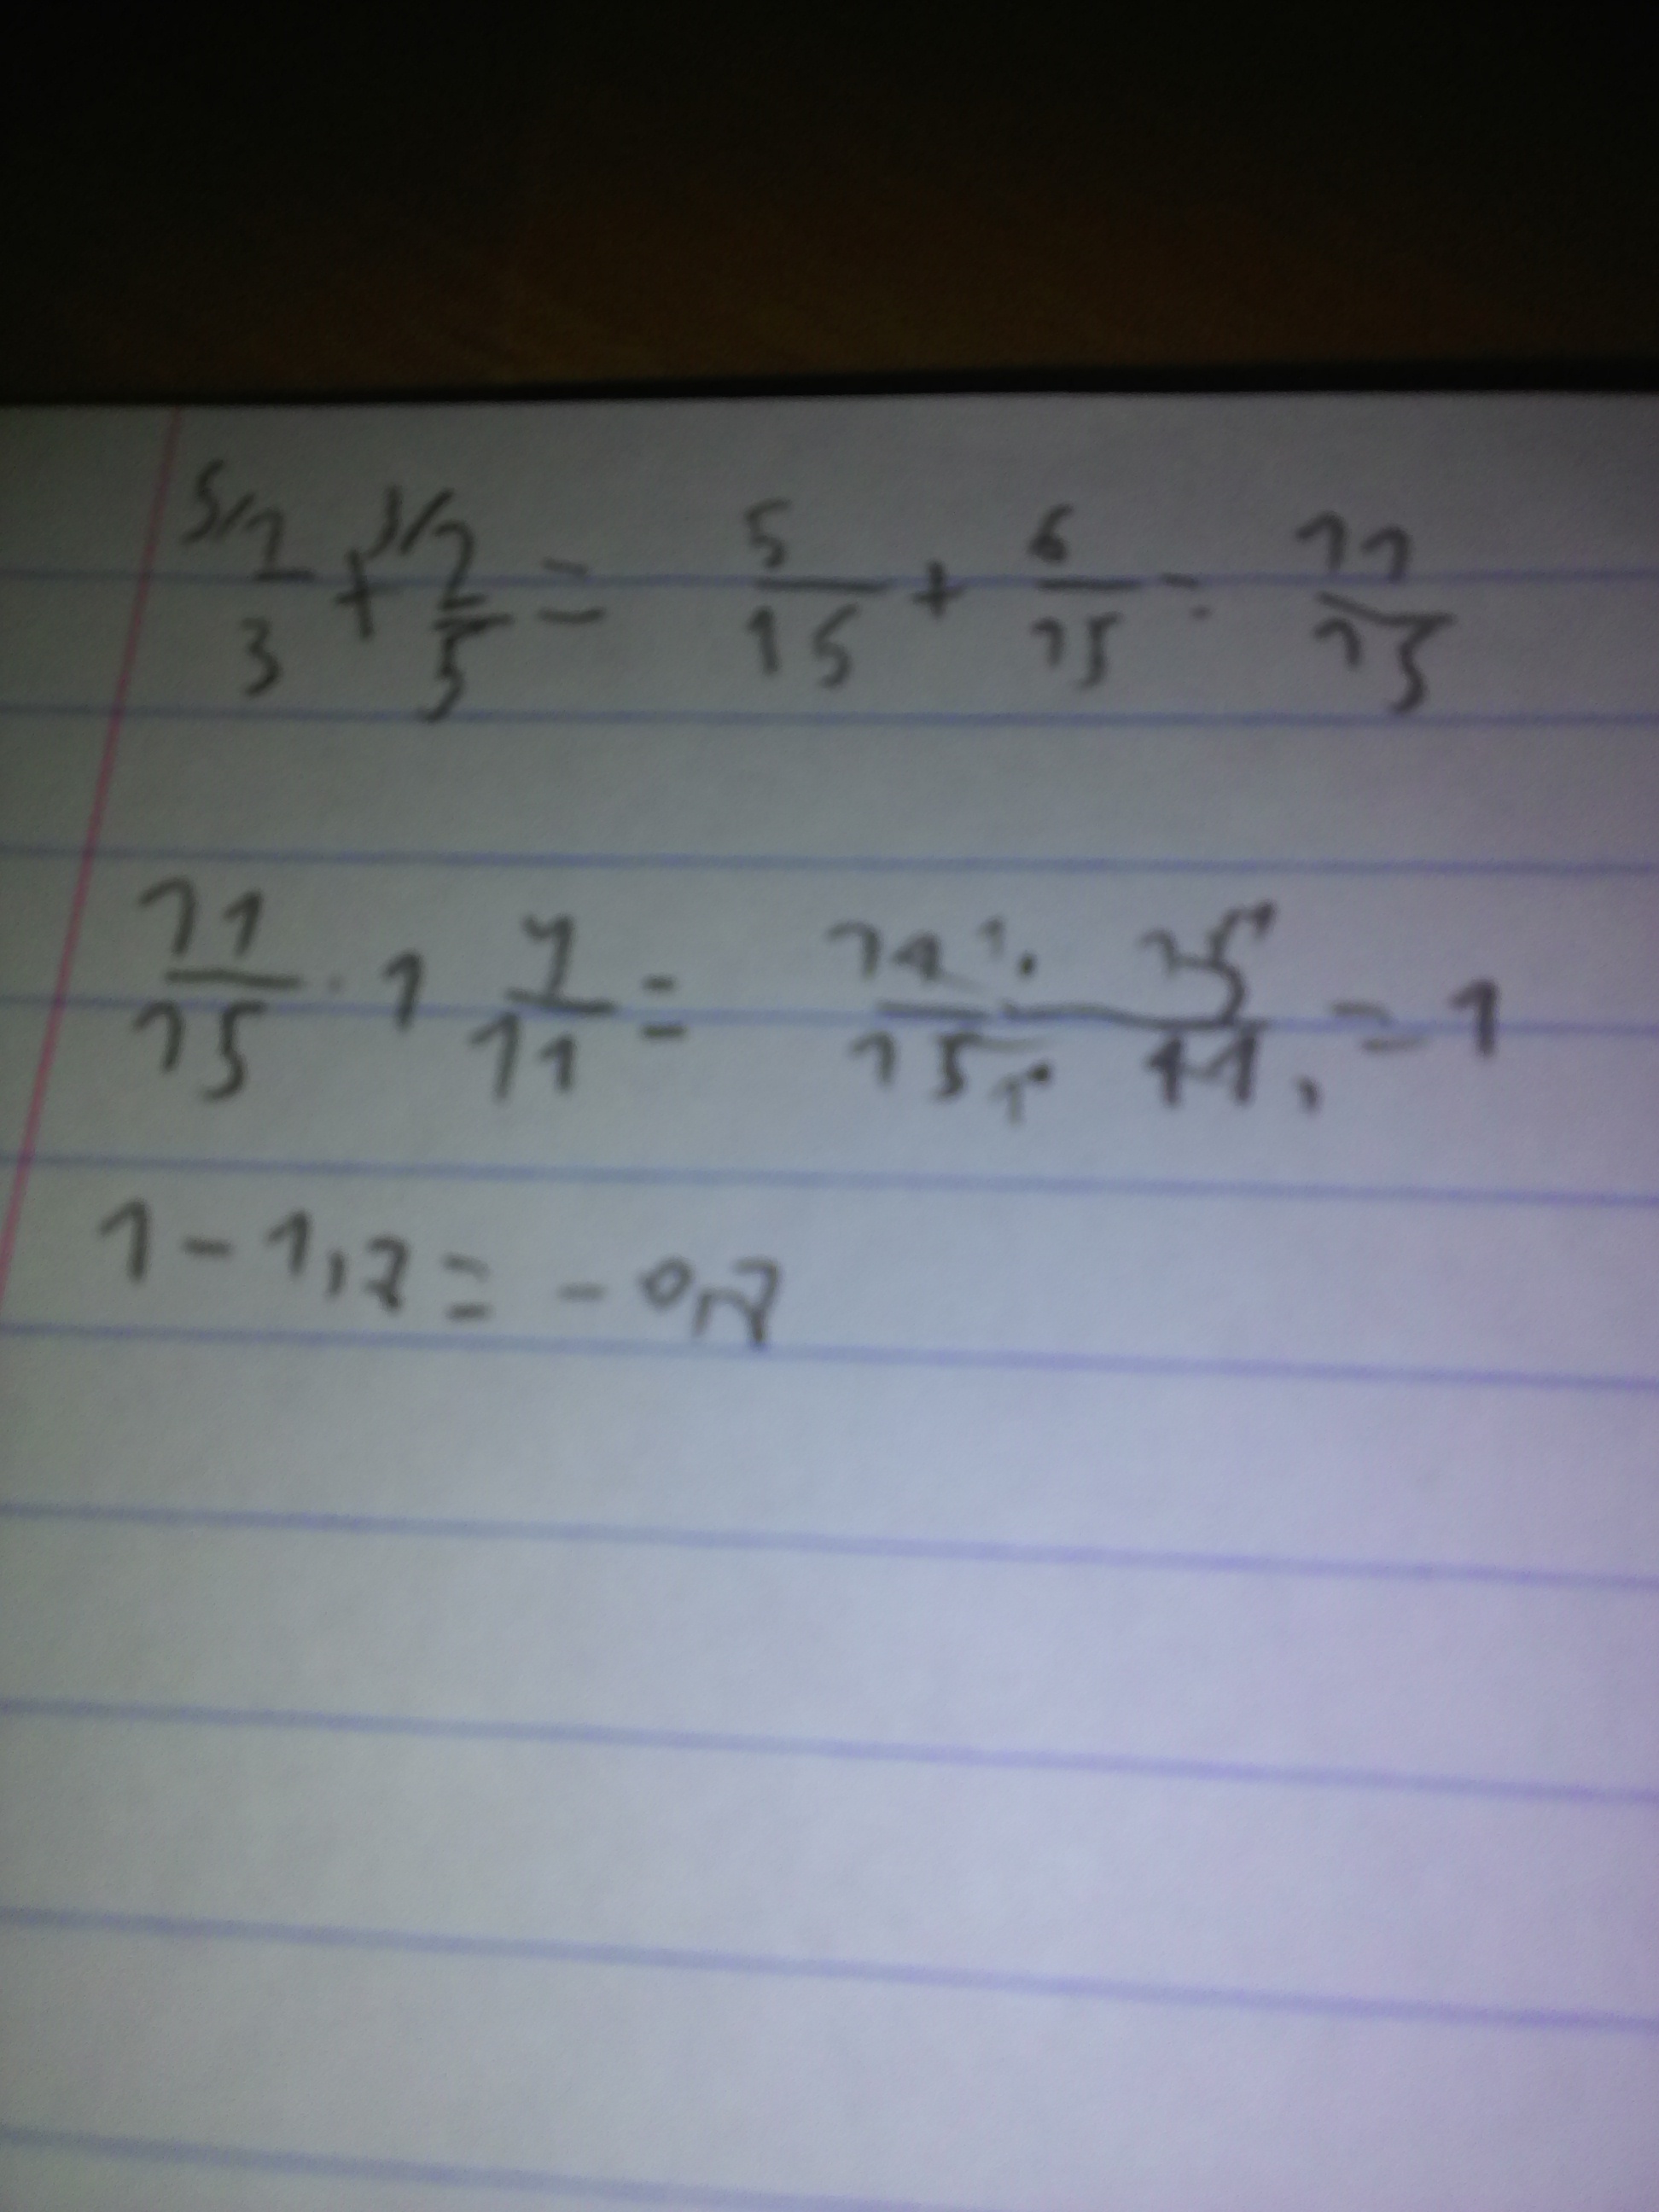 5/1/3 + 3/2/5 = 5/15 + 6/15 = 11/15
11/15 · 1 4/11 = 11 1 · 15 1/15 1 · 11 1 = 1
1 - 1,2 = - 0,2